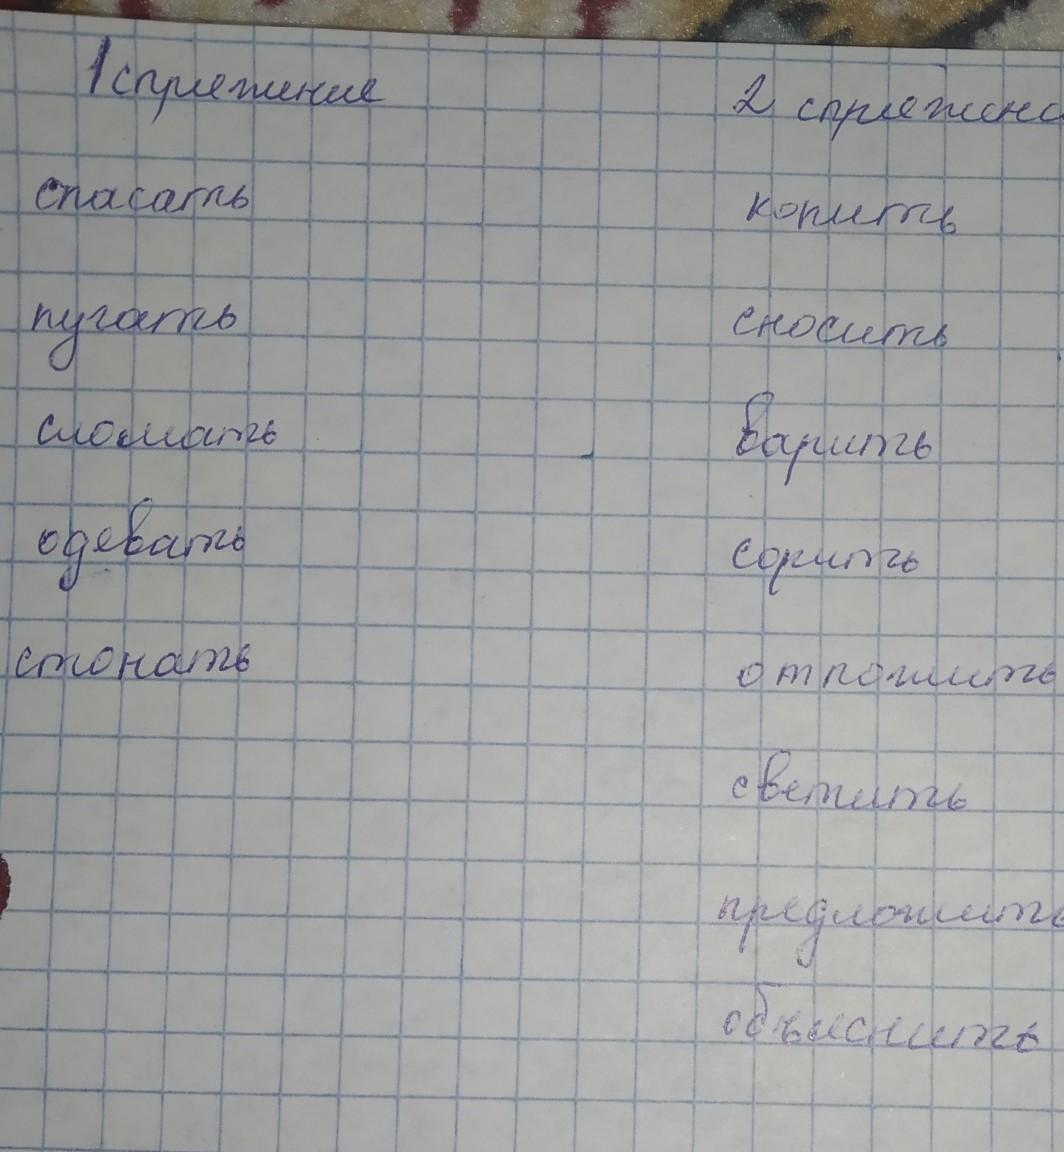 1 спряжение
2 спряжени
спасать
копить
пугать
сносить
сломать
варить
одевать
сорить
стонать
светить
предложить
объяснить